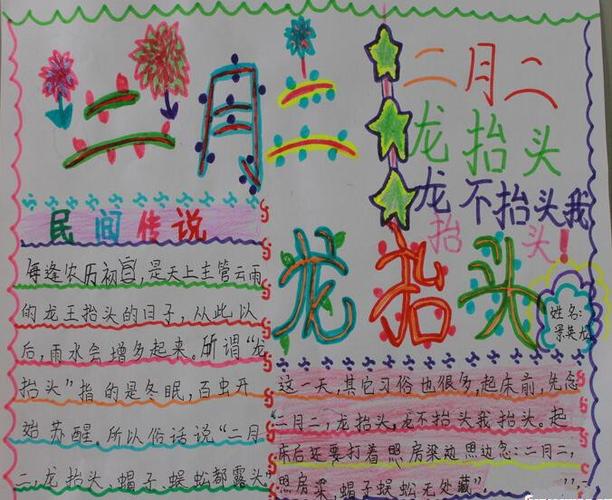 二月二
二月二
龙抬头
龙不抬头我
抬头!
龙抬头
姓名:
景英龙
民间传说
每逢农历初, 是天上主管云雨
的龙王抬头的日子, 从此以
后, 雨水会增多起来。所谓“龙
抬头”指的是冬眠, 百虫开
始苏醒, 所以俗话说“二月
二, 龙抬头、蝎子、蜈蚣都露头
这一天, 其它习俗也很多, 起床前, 先念
“二月二, 龙抬头, 龙不抬头我抬头。起
床后还要打着照房梁边照边念: 二月二,
照房梁, 蝎子蜈蚣无处藏”